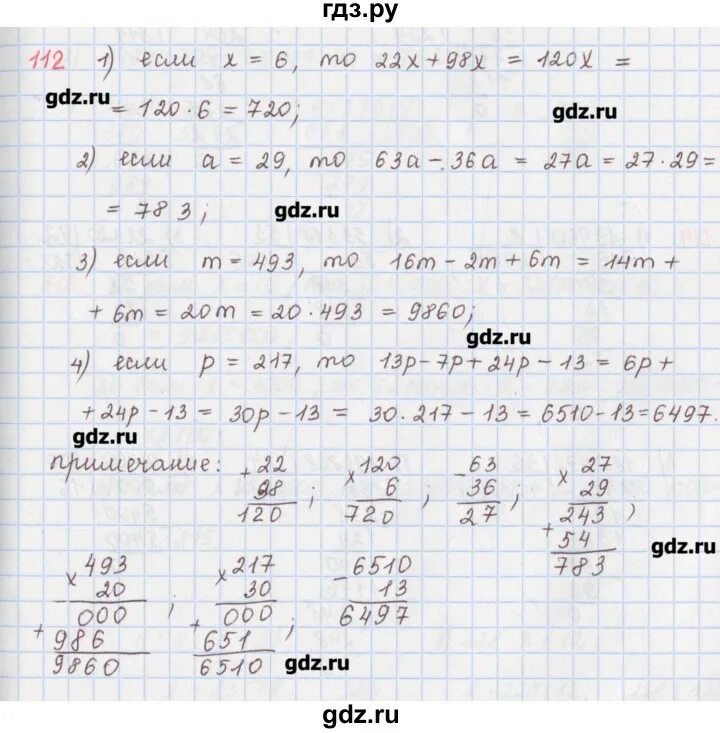 гдз.ру
112 1) если x = 6, то 22x + 98x = 120x =
gdz.ru
= 120·6 = 720;
gdz.ru
2) если a = 29, то 63a - 36a = 27a = 27·29 =
= 783;
gdz.ru
3) если m = 493, то 16m - 2m + 6m = 14m +
+ 6m = 20m = 20·493 = 9860;
gdz.ru
4) если p = 217, то 13p - 7p + 24p - 13 = 6p +
+ 24p - 13 = 30p - 13 = 30·217 - 13 = 6510 - 13 = 6497.
gdz.ru
примечание:
+ 22
98
120 ;
x 120
6
720 ;
- 63
36
27 ;
x 27
29
243 )
+ 54
783
gdz.ru
x 493
20
000 ;
+ 986
9860
x 217
30
000 ;
+ 651
6510
- 6510
13
6497
gdz.ru
gdz.ru